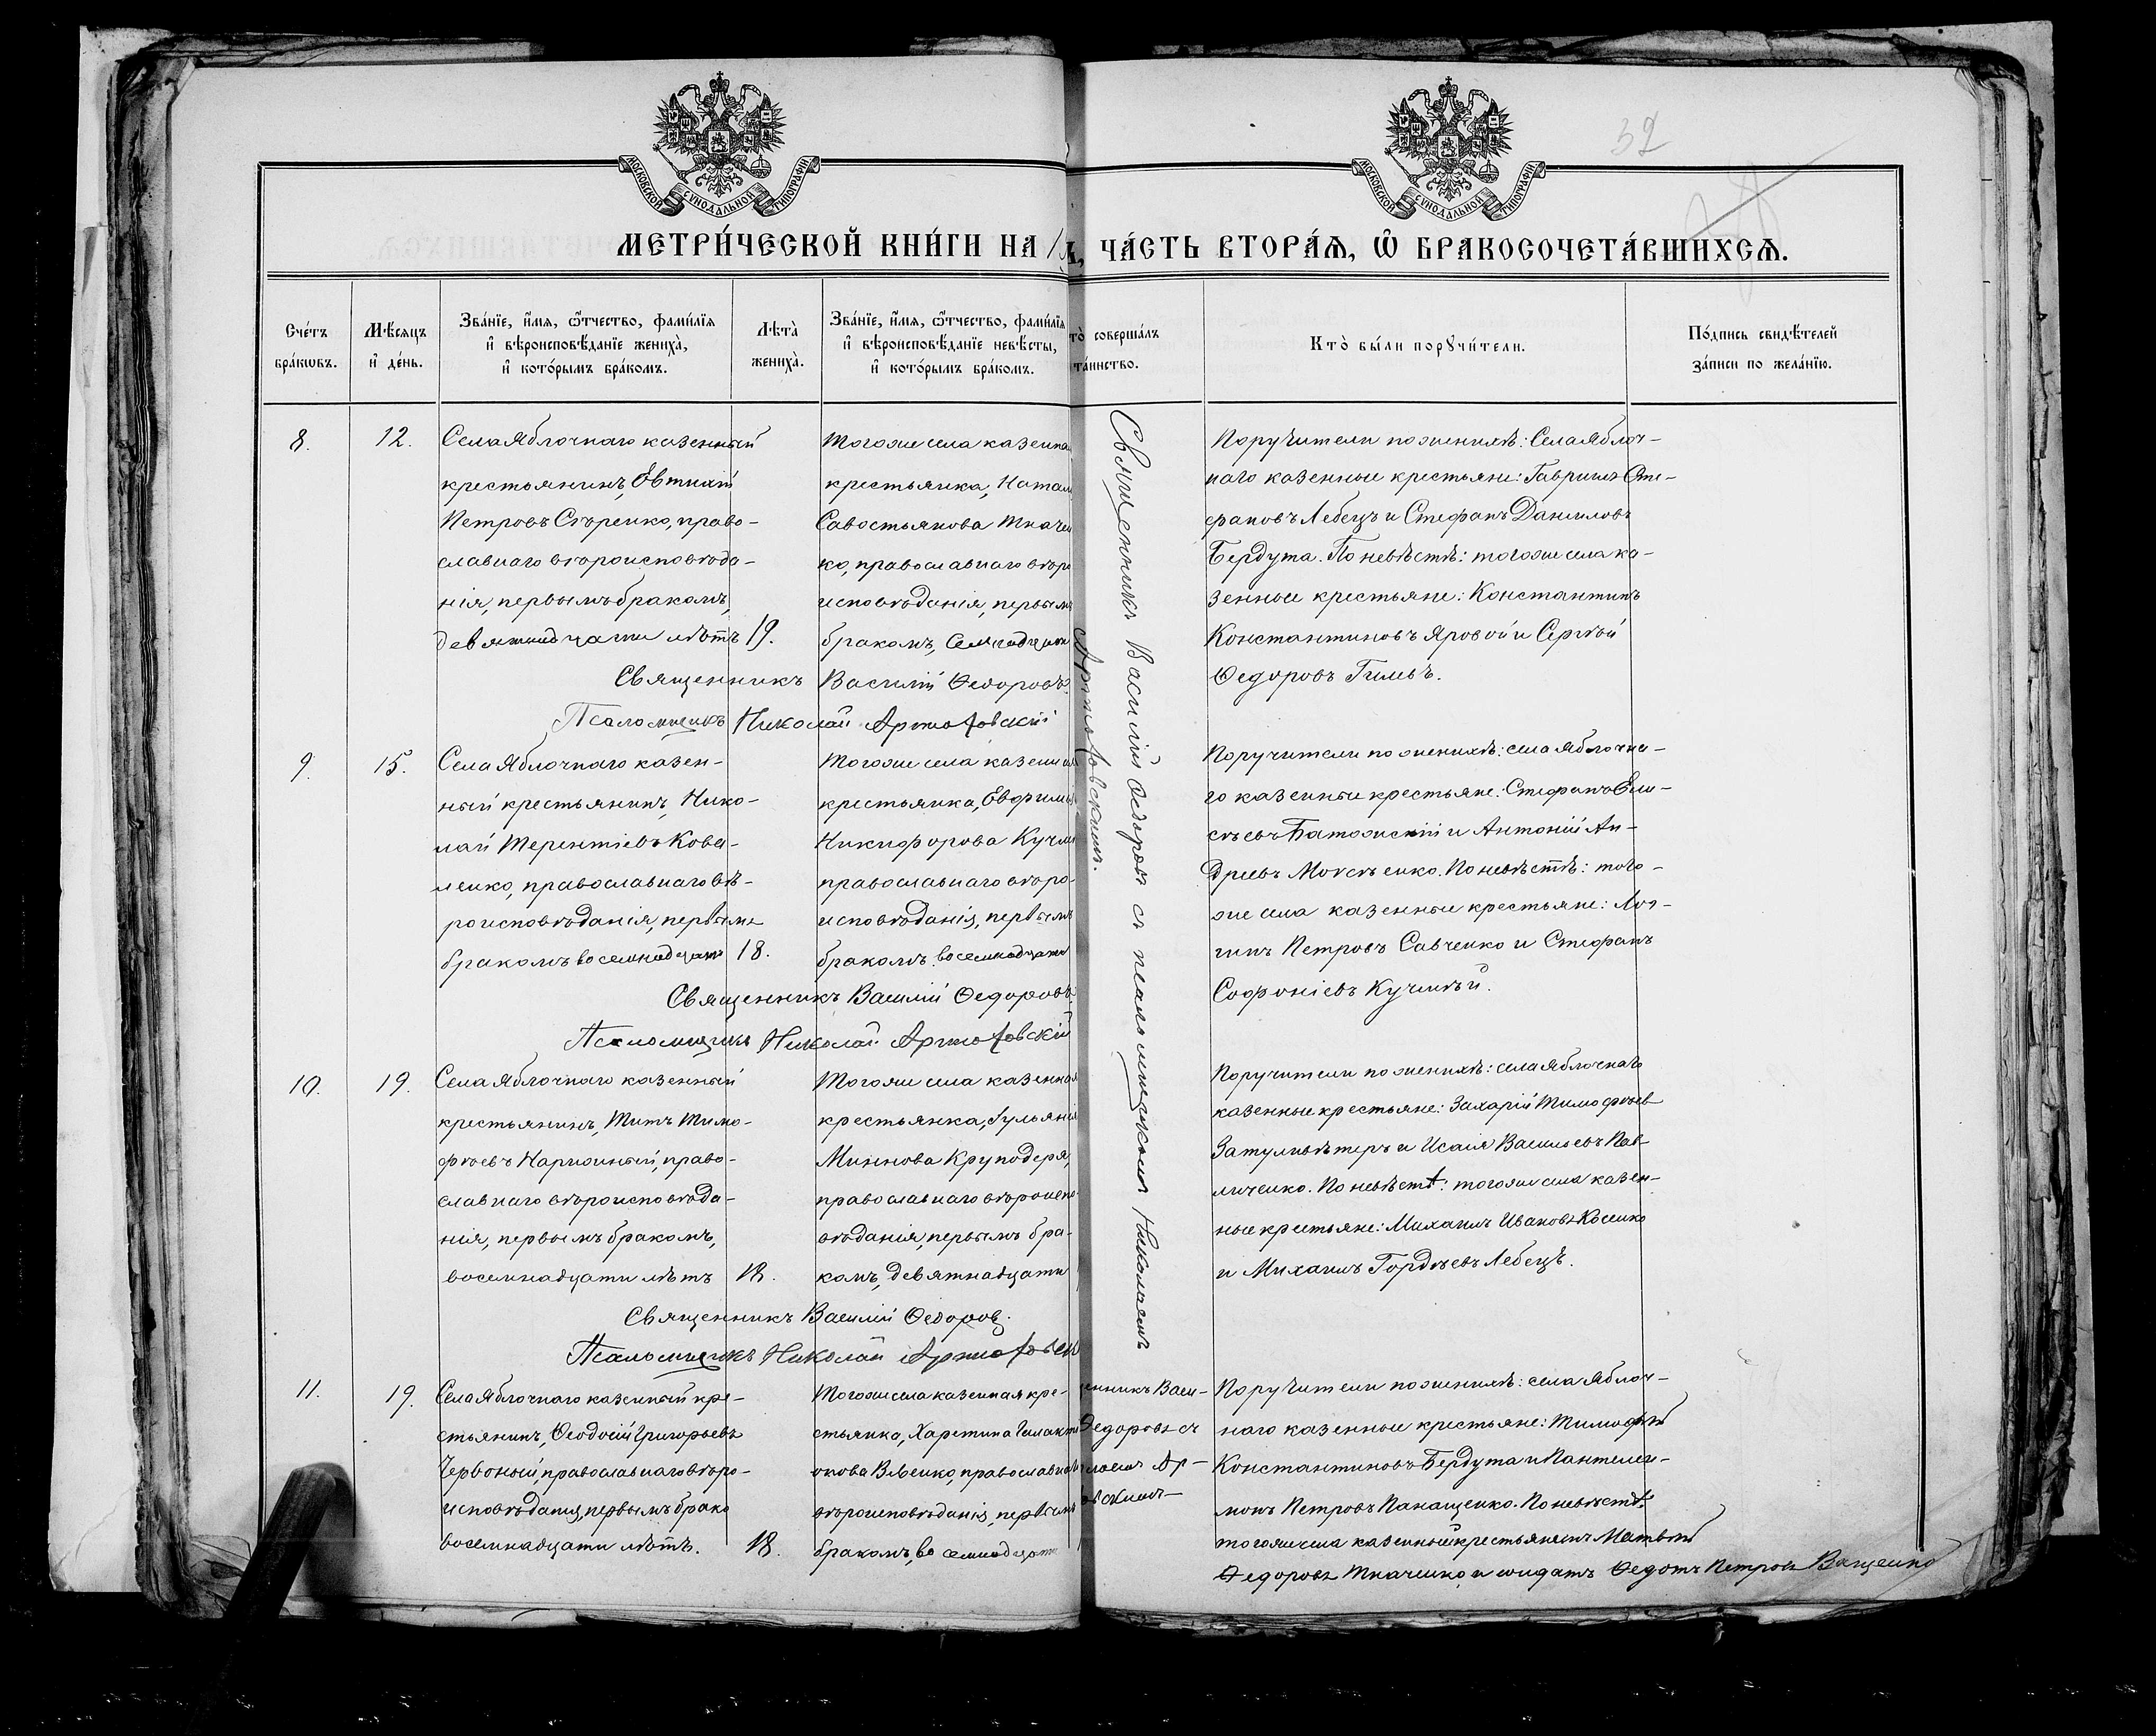 32
МОСКОВСКОЙ СѴНОДАЛЬНОЙ ТИПОГРАФІИ
МОСКОВСКОЙ СѴНОДАЛЬНОЙ ТИПОГРАФІИ
МЕТРИ́ЧЕСКОЙ КНИ́ГИ НА
ЧА́СТЬ ВТОРА́Ѧ, Ѽ БРАКОСОЧЕТА́ВШИХСѦ.
Сче́тъ
бра́кѡвъ.
Мѣ́сяцъ
и҆ де́нь.
Зва́нїе, и҆́мѧ, ѻ҆́тчество, фами́лїѧ
и҆ вѣроисповѣ́данїе жениха̀,
и҆ кото́рымъ бра́комъ.
Лѣта̀
жениха̀.
Зва́нїе, и҆́мѧ, ѻ҆́тчество, фами́лїѧ
и҆ вѣроисповѣ́данїе невѣ́сты,
и҆ кото́рымъ бра́комъ.
то̀ соверша́лъ
та́инство.
Кто̀ бы́ли порꙋчи́тели.
По́дпись свидѣ́телей
за́писи по жела́нїю.
8.
12.
Села Яблочнаго казенный
крестьянинъ, Евтихій
Петровъ Сѣренко, право-
славнаго вѣроисповѣда-
нія, первымъ бракомъ,
девятнадцати лѣтъ
19.
Тогоже села казенна
крестьянка, Натал
Савостьянова Ткачен
ко, православнаго вѣро
исповѣданія, первымъ
бракомъ, семнадцати
Священникъ Василій Ѳедоровъ.
Псаломщикъ Николай Артюховскій
Священникъ Василій Ѳедоровъ съ псаломщикомъ Николаемъ
Артюховскимъ.
Поручители по женихѣ: Села Яблоч-
наго казенные крестьяне: Гавриилъ Сте-
фановъ Лебедь и Стефанъ Даниловъ
Бердута. По невѣстѣ: тогоже села ка-
зенные крестьяне: Константинъ
Константиновъ Яровой и Сергѣй
Ѳедоровъ
9.
15.
Села Яблочнаго казен-
ный крестьянинъ, Нико-
лай Терентіевъ Кова-
ленко, православнаго вѣ-
роисповѣданія, первымъ
бракомъ восемнадцати
18.
Тогоже села казенная
крестьянка, Евфимія
Никифорова Кучми
православнаго вѣро-
исповѣданія, первымъ
бракомъ восемнадцати
Священникъ Василій Ѳедоровъ.
Псаломщикъ Николай Артюховскій
Поручители по женихѣ: села Яблочна-
го казенные крестьяне: Стефанъ Ели-
сѣевъ и Антоній Ан-
дреевъ Мовсѣенко. По невѣстѣ: того-
же села казенные крестьяне: Лог-
гинъ Петровъ Савченко и Стефанъ
Софоніевъ Кучмѣй.
10.
19.
Села Яблочнаго казенный
крестьянинъ, Титъ Тимо-
фѣевъ Нарижный, право-
славнаго вѣроисповѣда-
нія, первымъ бракомъ,
восемнадцати лѣтъ
18.
Тогоже села казенная
крестьянка, Іульянія
Миннова Круподеря,
православнаго вѣроиспо-
вѣданія, первымъ бра-
комъ, девятнадцати
Священникъ Василій Ѳедоровъ.
Псаломщикъ Николай Артюховск
Поручители по женихѣ: села Яблочнаго
казенные крестьяне: Захарій Тимофѣев
Затуливѣтеръ и Исаія Васильевъ Пав-
личенко. По невѣстѣ: тогоже села казен-
ные крестьяне: Михаилъ Ивановъ Косенко
и Михаилъ Гордѣевъ Лебедь.
11.
19.
Села Яблочнаго казенный кре-
стьянинъ, Ѳеодосій Григорьевъ
Червоный, православнаго вѣро-
исповѣданія, первымъ брако
восемнадцати лѣтъ.
18.
Тогоже села казенная кре-
стьянка, Харитина Галакті
онова православна
вѣроисповѣданія, первымъ
бракомъ, восемнадцати
енникъ Васи-
Ѳедоровъ съ
лаемъ Ар-
овскимъ
Поручители по женихѣ: села Яблоч-
наго казенные крестьяне: Тимофѣй
Константиновъ Бердута и Пантелей-
монъ Петровъ Панащенко. По невѣстѣ:
тогоже села казенный крестьянинъ Матвѣй
Ѳедоровъ Ткаченко и солдатъ Ѳедотъ Петровъ Ващенко